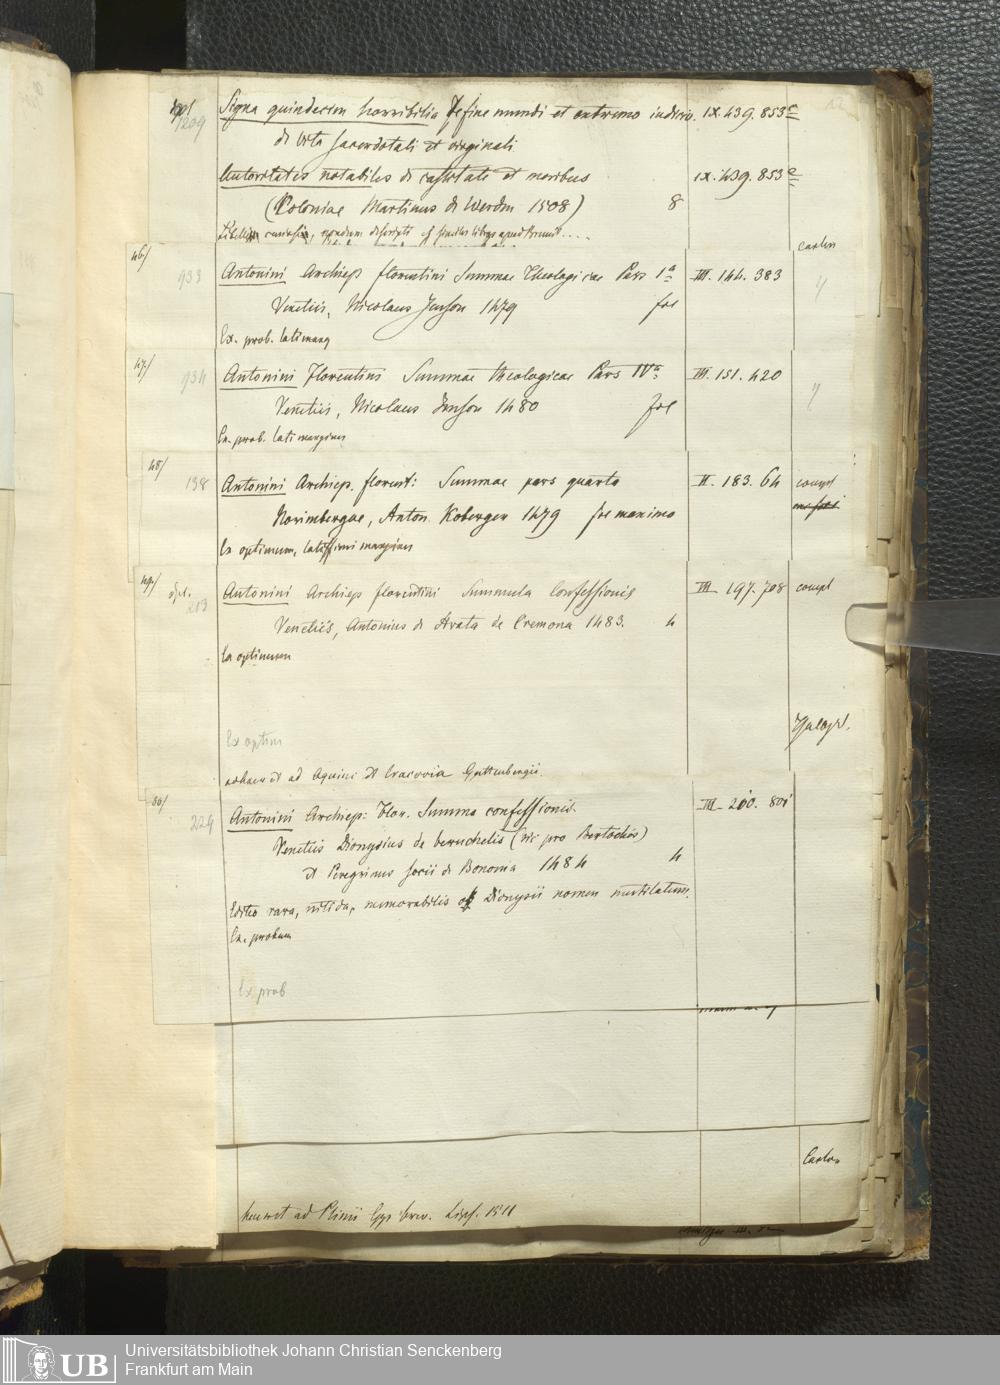 Signa quindecim horribilia de fine mundi et extremo iudicio. IX. 439. 853
1209
de vita sacerdotali et virginali
Autoritates notabiles de castitate et moribus IX. 439. 853
(Coloniae Martinus de Werden 1508) 8
46/
933 Antonini Archiep florentini Summae Theologicae Pars 1a III. 144. 383
Venetiis, Nicolaus Jenson 1479 fol
Ex. prob. lati marg
47/
934 Antonini Florentini Summae theologicae Pars IVa III. 151. 420
Venetiis, Nicolaus Jenson 1480 fol
Ex. prob. lati marginis
48/
138 Antonini Archiep. florent: Summae pars quarta II. 183. 64 compl
Norimbergae, Anton Koberger 1479 fol maximo
Ex optimum, latissimi marginis
49/ dpl.
213 Antonini Archiep florentini Summula Confessionis III 197. 708 compl
Venetiis, Antonius de Strata de Cremona 1483. 4
Ex optimum
Ex optim
adhaeret ad Aquini et Cracovia Guttenbergii.
50/
229 Antonini Archiep: Flor. Summa confessionis. III 200. 801
Venetiis Dionysius de beruchelis (sic pro Bertochis)
et Peregrinus socii de Bononia 1484 4
Editio rara, nitida, memorabilis ob Dionysii nomen mutilatum.
Ex. probum
Ex prob
Carton
haeret ad Plinii Epp brev. Lips. 1511
UB
Universitätsbibliothek Johann Christian Senckenberg
Frankfurt am Main